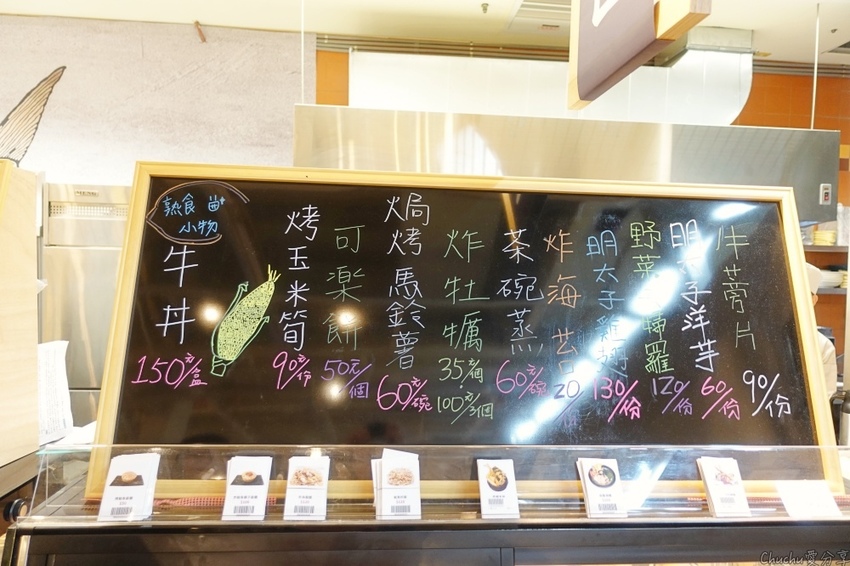 熟食
小物
牛丼
150元/盒
烤玉米筍
90元/份
可樂餅
50元/個
焗烤馬鈴薯
60元/碗
炸牡蠣
35元/個
100元/3個
茶碗蒸
60元/碗
炸海苔
20/
明太子雞翅
130/份
野菜
羅
120/份
明太子洋芋
60/份
牛蒡片
90/份
Chuchu愛分享